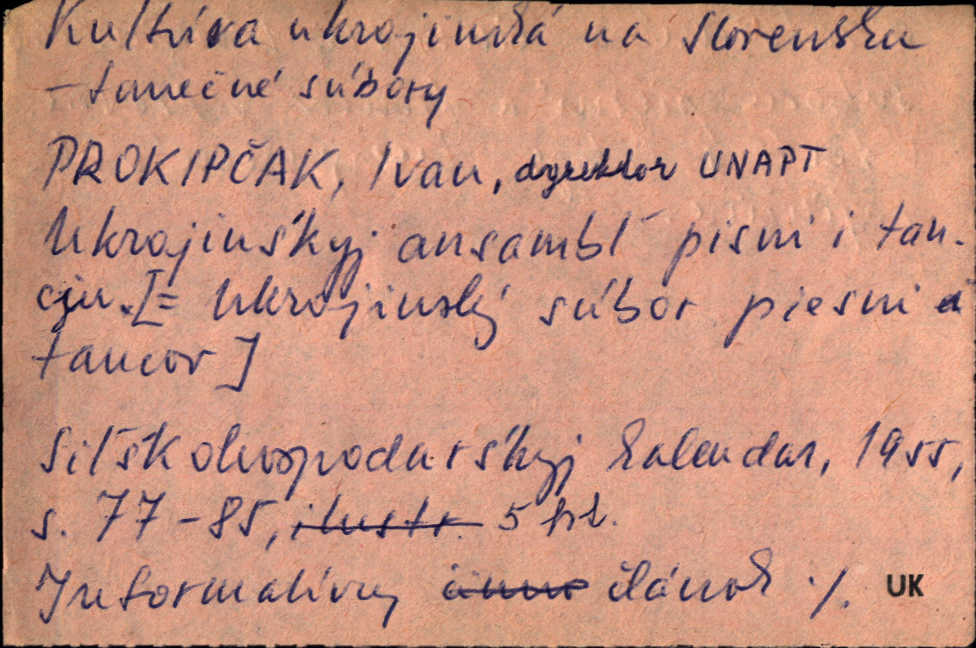 Kultúra ukrajinská na Slovensku
- tanečné súbory
PROKIPČAK, Ivan, dyrektor UNAPT
Ukrajinśkyj ansambľ pisni i tan-
cju. [= Ukrajinský súbor piesní a
tancov]
Siľśkohospodarśkyj kalendar, 1955,
s. 77-85, ilustr. 5 fot.
Informatívny článok ·/. UK